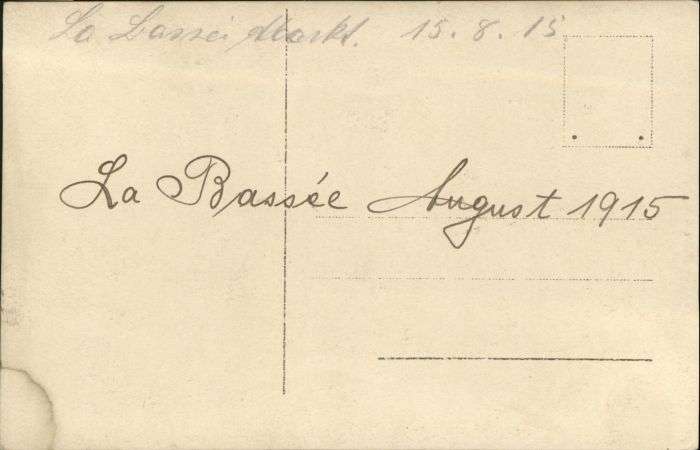 La Bassée Markt. 15.8.15
La Bassée August 1915